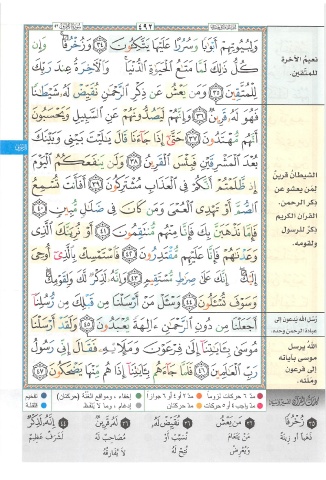 سورة الزخرف ٤٣
٤٩٢
الجزء الخامس والعشرون
وَلِبُيُوتِهِمْ أَبْوَٰبًا وَسُرُرًا عَلَيْهَا يَتَّكِـُٔونَ ٣٤ وَزُخْرُفًا ۚ وَإِن
كُلُّ ذَٰلِكَ لَمَّا مَتَـٰعُ ٱلْحَيَوٰةِ ٱلدُّنْيَا ۚ وَٱلْـَٔاخِرَةُ عِندَ رَبِّكَ
لِلْمُتَّقِينَ ٣٥ وَمَن يَعْشُ عَن ذِكْرِ ٱلرَّحْمَـٰنِ نُقَيِّضْ لَهُۥ شَيْطَـٰنًا
فَهُوَ لَهُۥ قَرِينٌ ٣٦ وَإِنَّهُمْ لَيَصُدُّونَهُمْ عَنِ ٱلسَّبِيلِ وَيَحْسَبُونَ
أَنَّهُم مُّهْتَدُونَ ٣٧ حَتَّىٰٓ إِذَا جَآءَنَا قَالَ يَـٰلَيْتَ بَيْنِى وَبَيْنَكَ
بُعْدَ ٱلْمَشْرِقَيْنِ فَبِئْسَ ٱلْقَرِينُ ٣٨ وَلَن يَنفَعَكُمُ ٱلْيَوْمَ
إِذ ظَّلَمْتُمْ أَنَّكُمْ فِى ٱلْعَذَابِ مُشْتَرِكُونَ ٣٩ أَفَأَنتَ تُسْمِعُ
ٱلصُّمَّ أَوْ تَهْدِى ٱلْعُمْىَ وَمَن كَانَ فِى ضَلَـٰلٍ مُّبِينٍ ٤٠
فَإِمَّا نَذْهَبَنَّ بِكَ فَإِنَّا مِنْهُم مُّنتَقِمُونَ ٤١ أَوْ نُرِيَنَّكَ ٱلَّذِى
وَعَدْنَـٰهُمْ فَإِنَّا عَلَيْهِم مُّقْتَدِرُونَ ٤٢ فَٱسْتَمْسِكْ بِٱلَّذِىٓ أُوحِىَ
إِلَيْكَ ۖ إِنَّكَ عَلَىٰ صِرَٰطٍ مُّسْتَقِيمٍ ٤٣ وَإِنَّهُۥ لَذِكْرٌ لَّكَ وَلِقَوْمِكَ ۖ
وَسَوْفَ تُسْـَٔلُونَ ٤٤ وَسْـَٔلْ مَنْ أَرْسَلْنَا مِن قَبْلِكَ مِن رُّسُلِنَآ
أَجَعَلْنَا مِن دُونِ ٱلرَّحْمَـٰنِ ءَالِهَةً يُعْبَدُونَ ٤٥ وَلَقَدْ أَرْسَلْنَا
مُوسَىٰ بِـَٔايَـٰتِنَآ إِلَىٰ فِرْعَوْنَ وَمَلَإِيهِۦ فَقَالَ إِنِّى رَسُولُ
رَبِّ ٱلْعَـٰلَمِينَ ٤٦ فَلَمَّا جَآءَهُم بِـَٔايَـٰتِنَآ إِذَا هُم مِّنْهَا يَضْحَكُونَ ٤٧
نعيمُ الآخرة
للمتقين.
الشيطانُ قرينُ
لمن يعشو عن
ذكر الرحمن.
القرآن الكريم
ذكرٌ للرسول
ولقومه.
رُسُل الله يَدعون إلى
عبادة الرحمن وحده.
اللهُ يرسل
موسى بآياته
إلى فرعون
وملئه.
مدّ ٦ حركات لزوماً
مدّ ٢ أو ٤ أو ٦ جوازاً
إخفاء، ومواقع الغُنَّة (حركتان)
تفخيم
مدّ واجب ٤ أو ٥ حركات
مدّ حركتان
إدغام، وما لا يُلفَظ
قلقلة
٣٥ زُخْرُفًا
ذهباً أو زينة
٣٦ مَن يَعْشُ
مَن يتعامَ
ويُعرض
٣٦ نُقَيِّضْ لَهُ
نسبّب أو
نُتِح له
٣٦ لَهُ قَرِينٌ
مصاحِبٌ له
لا يفارقه
٤٤ إِنَّهُ لَذِكْرٌ
لشرفٌ عظيم